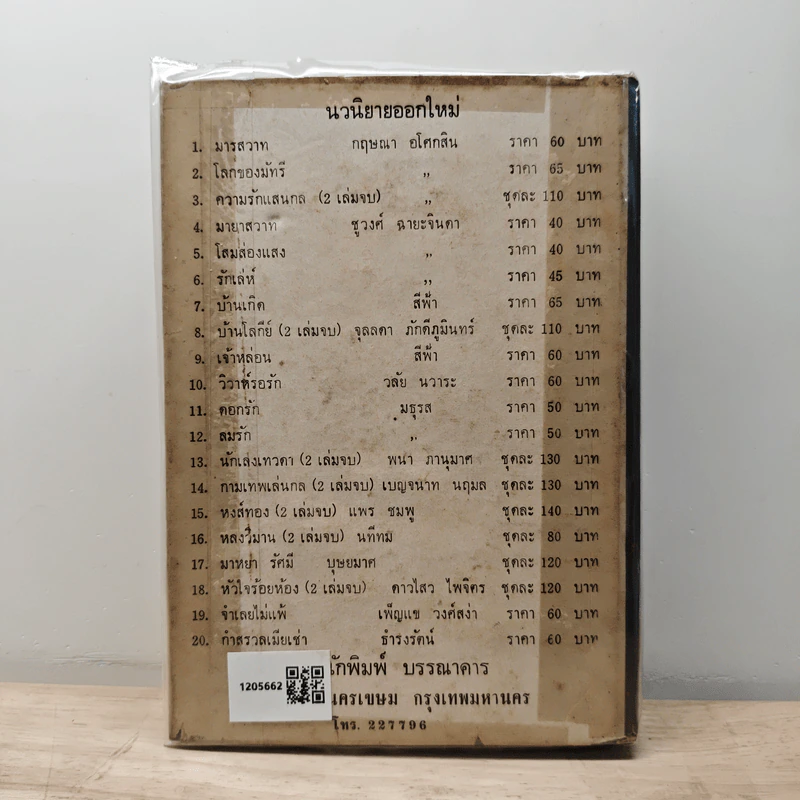 นวนิยายออกใหม่
1. มารสวาท กฤษณา อโศกสิน ราคา 60 บาท
2. โลกของมัทรี ,, ราคา 65 บาท
3. ความรักแสนกล (2 เล่มจบ) ,, ชุดละ 110 บาท
4. มายาสวาท ชูวงศ์ ฉายะจินดา ราคา 40 บาท
5. โสมส่องแสง ,, ราคา 40 บาท
6. รักเล่ห์ ,, ราคา 45 บาท
7. บ้านเกิด สีฟ้า ราคา 65 บาท
8. บ้านโลกีย์ (2 เล่มจบ) จุลลดา ภักดีภูมินทร์ ชุดละ 110 บาท
9. เจ้าหล่อน สีฟ้า ราคา 60 บาท
10. วิวาห์รอรัก วลัย นวาระ ราคา 60 บาท
11. ดอกรัก มธุรส ราคา 50 บาท
12. ลมรัก ,, ราคา 50 บาท
13. นักเลงเทวดา (2 เล่มจบ) พนา ภานุมาศ ชุดละ 130 บาท
14. กามเทพเล่นกล (2 เล่มจบ) เบญจนาท นฤมล ชุดละ 130 บาท
15. หงส์ทอง (2 เล่มจบ) แพร ชมพู ชุดละ 140 บาท
16. หลงวิมาน (2 เล่มจบ) นทีทม ชุดละ 80 บาท
17. มาหยา รัศมี บุษยมาศ ชุดละ 120 บาท
18. หัวใจร้อยห้อง (2 เล่มจบ) ดาวไสว ไพจิตร ชุดละ 120 บาท
19. จำเลยไม่แพ้ เพ็ญแข วงศ์สง่า ราคา 60 บาท
20. กำสรวลเมียเช่า ธำรงรัตน์ ราคา 60 บาท
นักพิมพ์ บรรณาคาร
นครเขษม กรุงเทพมหานคร
โทร. 227796
1205662